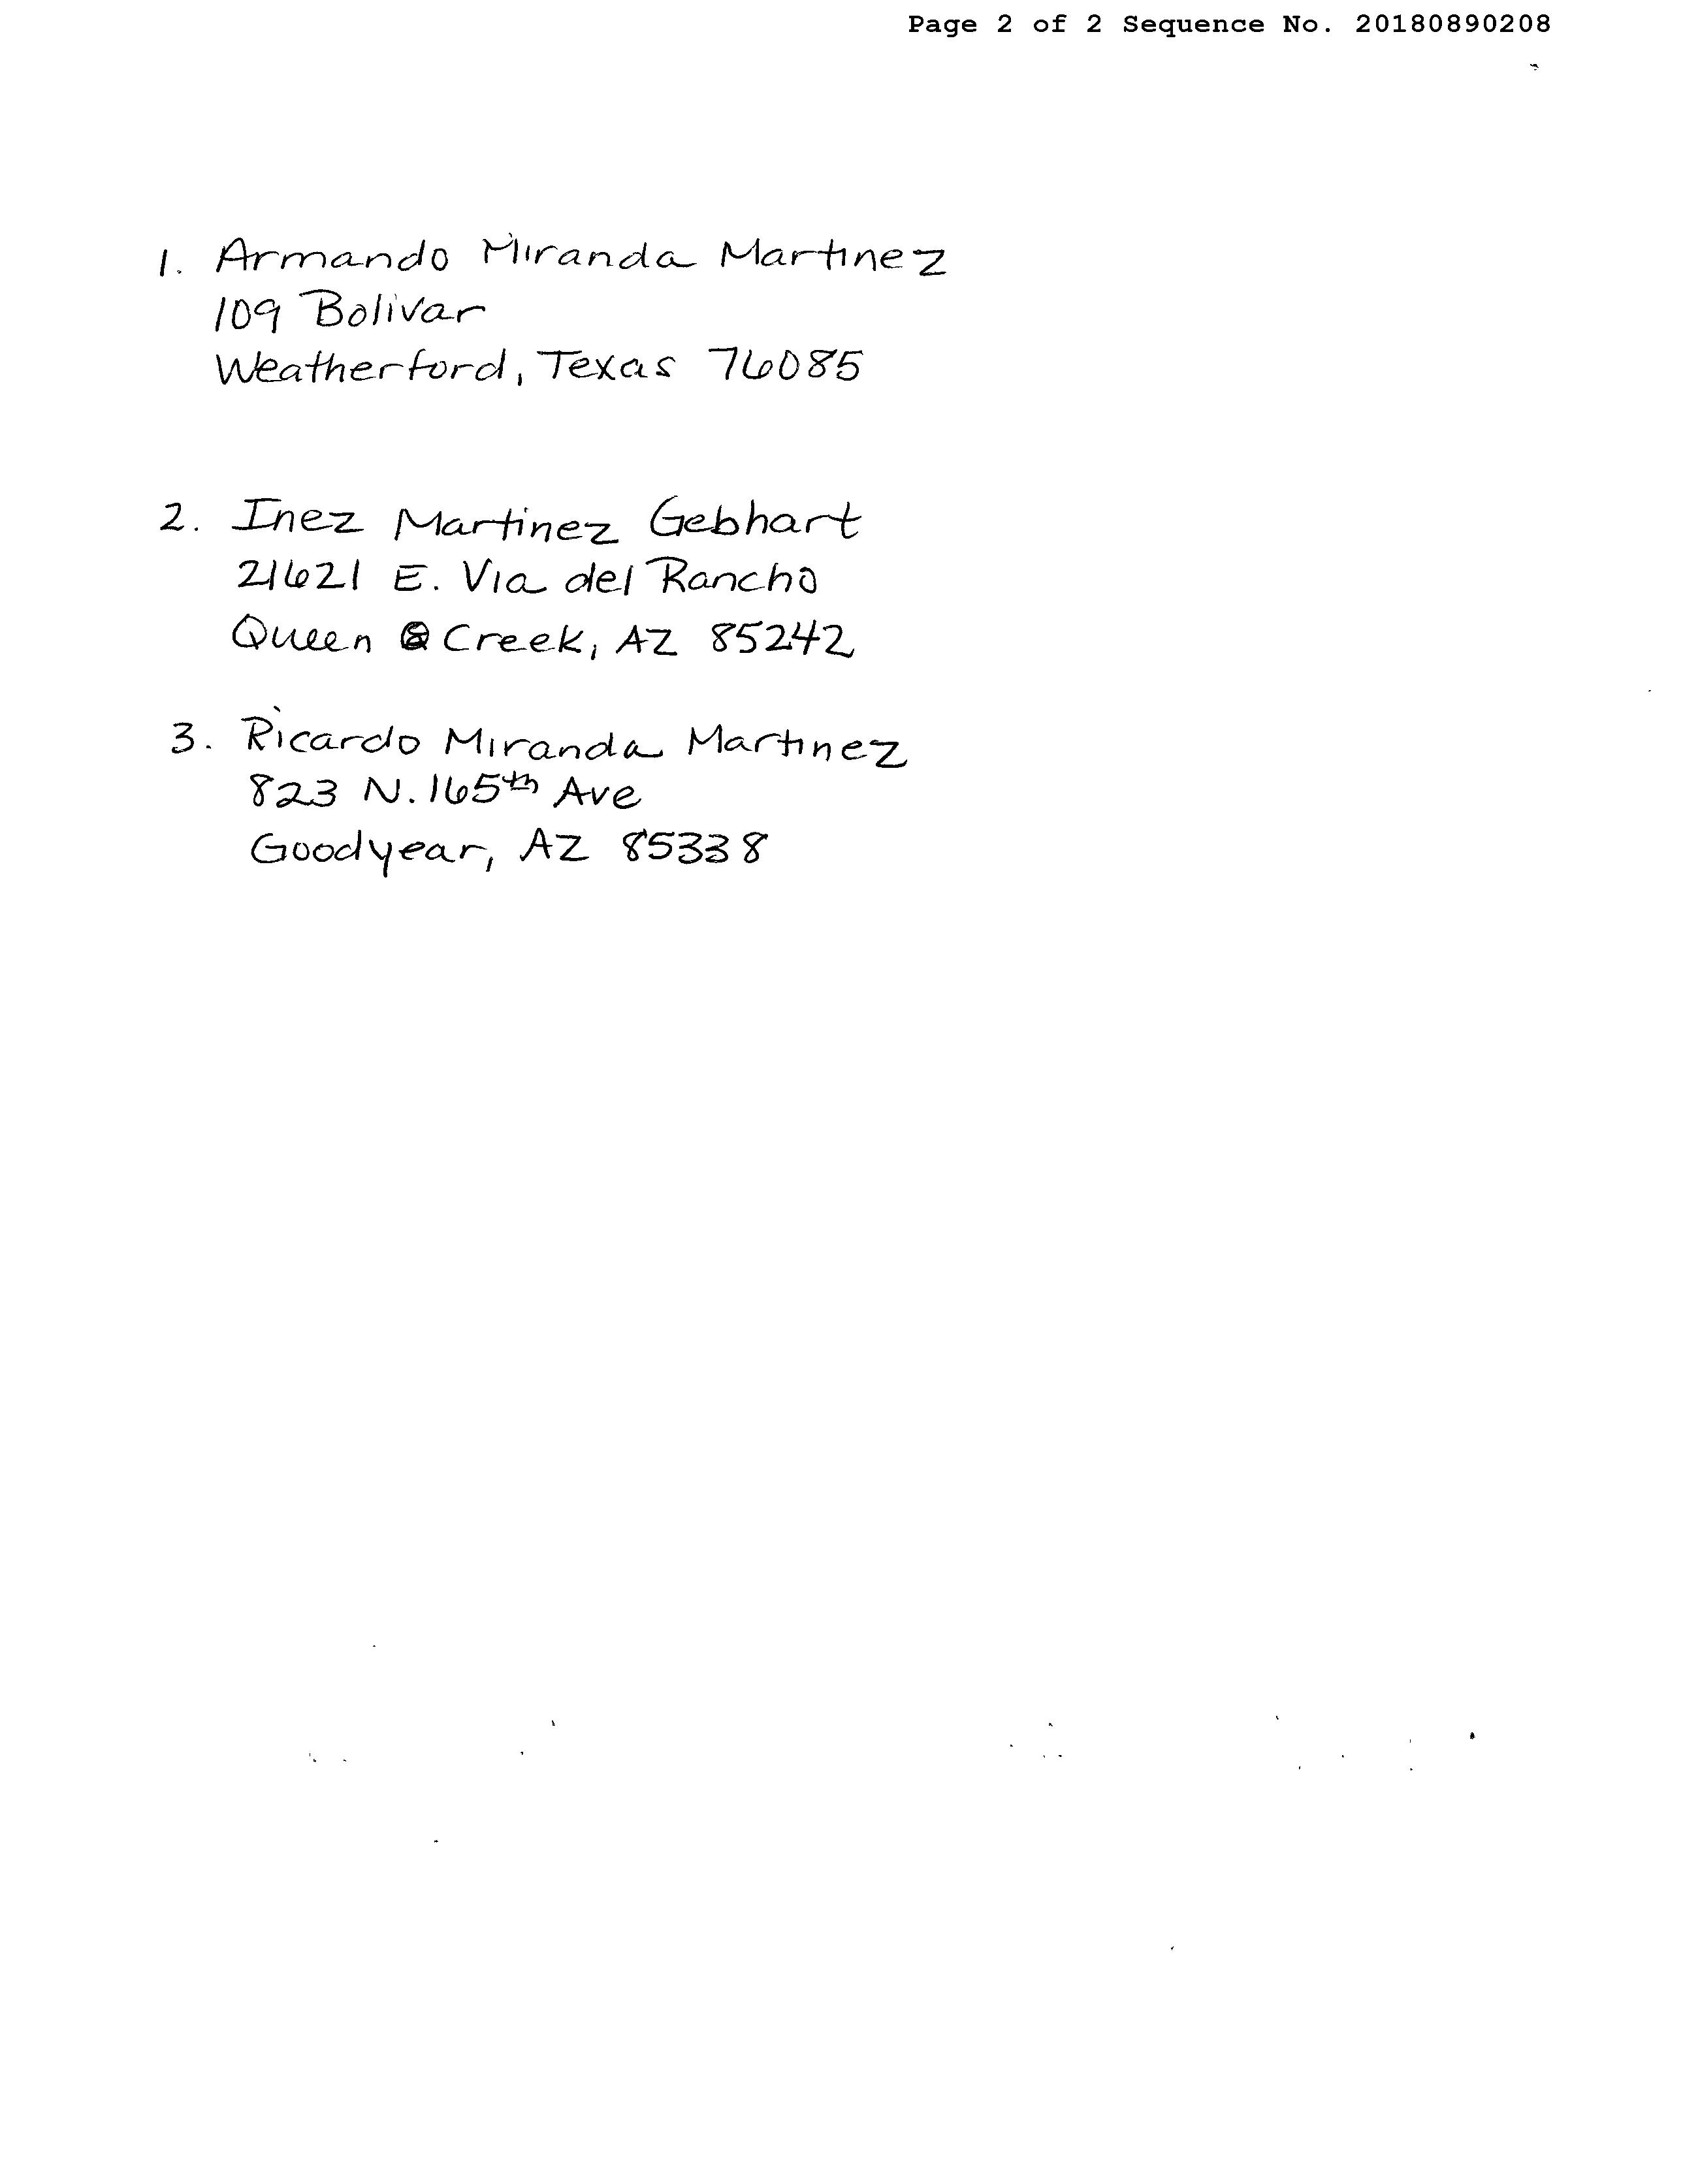 Page 2 of 2 Sequence No. 20180890208
1. Armando Miranda Martinez
109 Bolivar
Weatherford, Texas 76085
2. Inez Martinez Gebhart
21621 E. Via del Rancho
Queen Creek, AZ 85242
3. Ricardo Miranda Martinez
823 N. 165th Ave
Goodyear, AZ 85338